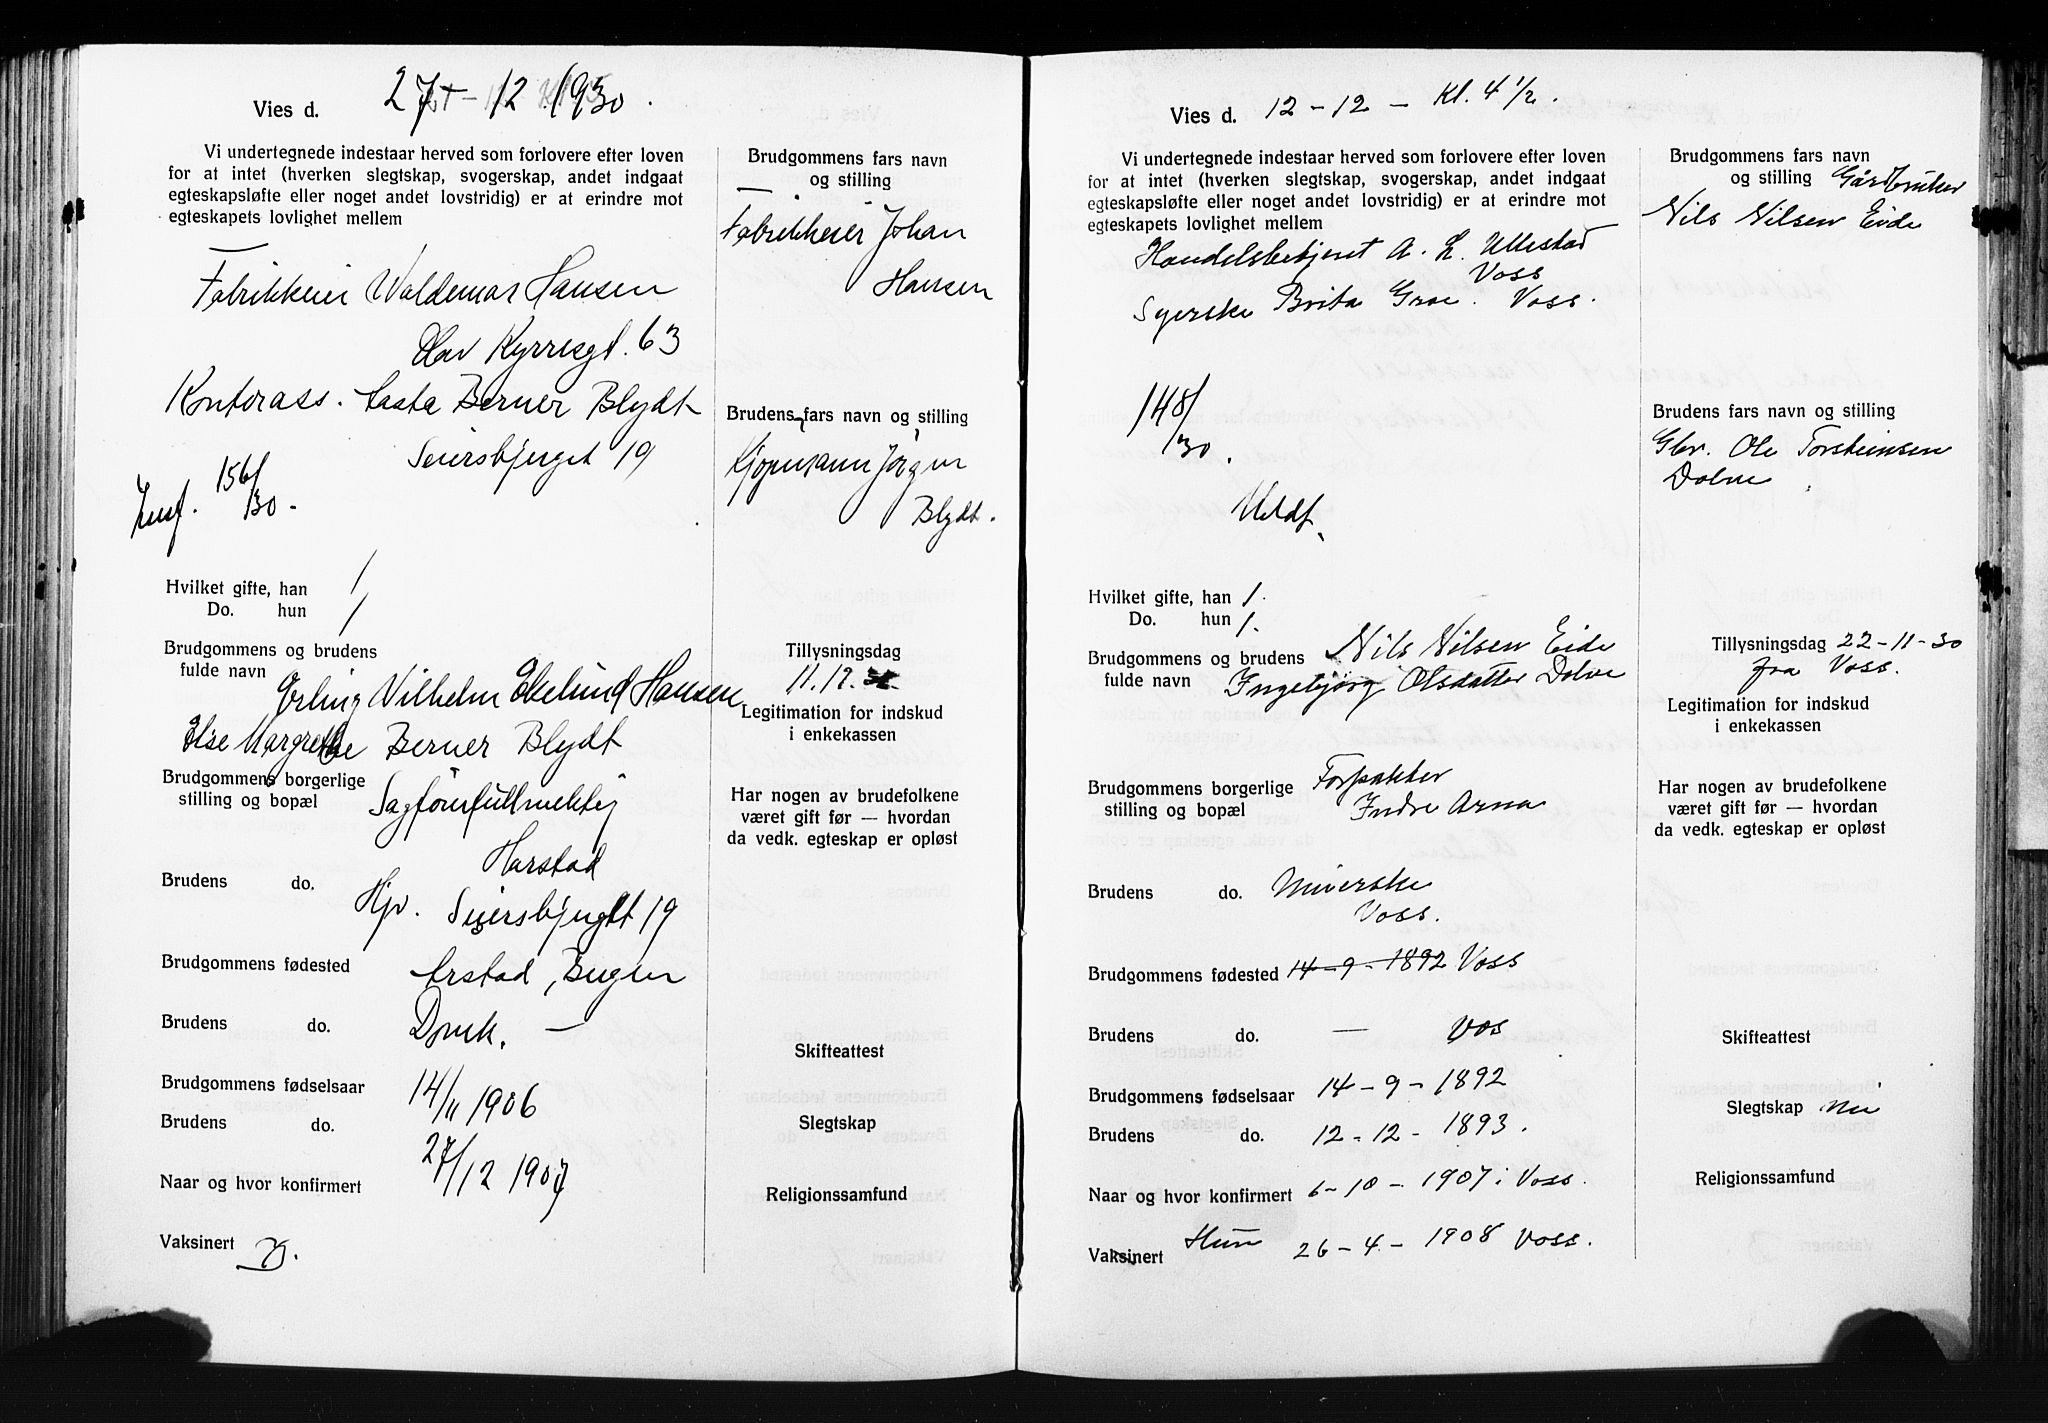 Vies d. 27-12 1930.
Vi undertegnede indestaar herved som forlovere efter loven
for at intet (hverken slegtskap, svogerskap, andet indgaat
egteskapsløfte eller noget andet lovstridig) er at erindre mot
egteskapets lovlighet mellem
Fabrikkeier Waldemar Hansen
Olav Kyrresgt. 63
Kontorass. Aasta Berner Blydt
Seiersbjerget 19
156/30.
Hvilket gifte, han 1
Do. hun 1
Brudgommens og brudens
fulde navn
Erling Vilhelm Ekelund Hansen
Else Margrethe Berner Blydt
Brudgommens borgerlige
stilling og bopæl
Sagførerfullmektig
Harstad
Brudens do. Hjv. Seiersbjerget 19
Brudgommens fødested Årstad, Bergen
Brudens do. Domk. —
Brudgommens fødselsaar 14/11 1906
Brudens do. 27/12 1907
Naar og hvor konfirmert
Vaksinert
Brudgommens fars navn
og stilling
Fabrikkeier Johan
Hansen
Brudens fars navn og stilling
Kjøpmann Jørgen
Blydt.
Tillysningsdag
11.12.
Legitimation for indskud
i enkekassen
Har nogen av brudefolkene
været gift før — hvordan
da vedk. egteskap er opløst
Skifteattest
Slegtskap
Religionssamfund
Vies d. 12-12 - Kl. 4 1/2.
Vi undertegnede indestaar herved som forlovere efter loven
for at intet (hverken slegtskap, svogerskap, andet indgaat
egteskapsløfte eller noget andet lovstridig) er at erindre mot
egteskapets lovlighet mellem
Handelsbetjent A. L. Ullestad
Voss
Syerske Brita Groe. Voss.
148/30.
Uldf.
Hvilket gifte, han 1.
Do. hun 1.
Brudgommens og brudens
fulde navn
Nils Nilsen Eide
Ingebjørg Olsdatter Dolve
Brudgommens borgerlige
stilling og bopæl
Forpakter
Indre Arna
Brudens do. Meierske
Voss.
Brudgommens fødested 14-9-1892 Voss
Brudens do. — Vos
Brudgommens fødselsaar 14-9-1892
Brudens do. 12-12-1893.
Naar og hvor konfirmert 6-10-1907 i Voss.
Vaksinert Hun 26-4-1908 Voss.
Brudgommens fars navn
og stilling Gårdbruker
Nils Nilsen Eide
Brudens fars navn og stilling
Gbr. Ole Torsteinsen
Dolve
Tillysningsdag 22-11-30
fra Voss.
Legitimation for indskud
i enkekassen
Har nogen av brudefolkene
været gift før — hvordan
da vedk. egteskap er opløst
Skifteattest
Slegtskap Nei
Religionssamfund